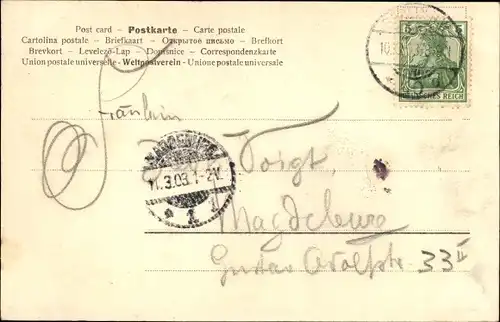 Post card - Postkarte - Carte postale
Cartolina postale - Briefkaart - Открытое письмо - Brefkort
Brevkort - Levelező-Lap - Dopisnice - Correspondenzkarte
Union postale universelle - Weltpostverein - Unione postale universale
5 5
DEUTSCHES REICH
Fräulein
Voigt,
MAGDEBURG
11.3.03.1-2V.
* 1
Magdeburg
Gustav Adolfstr 33 II